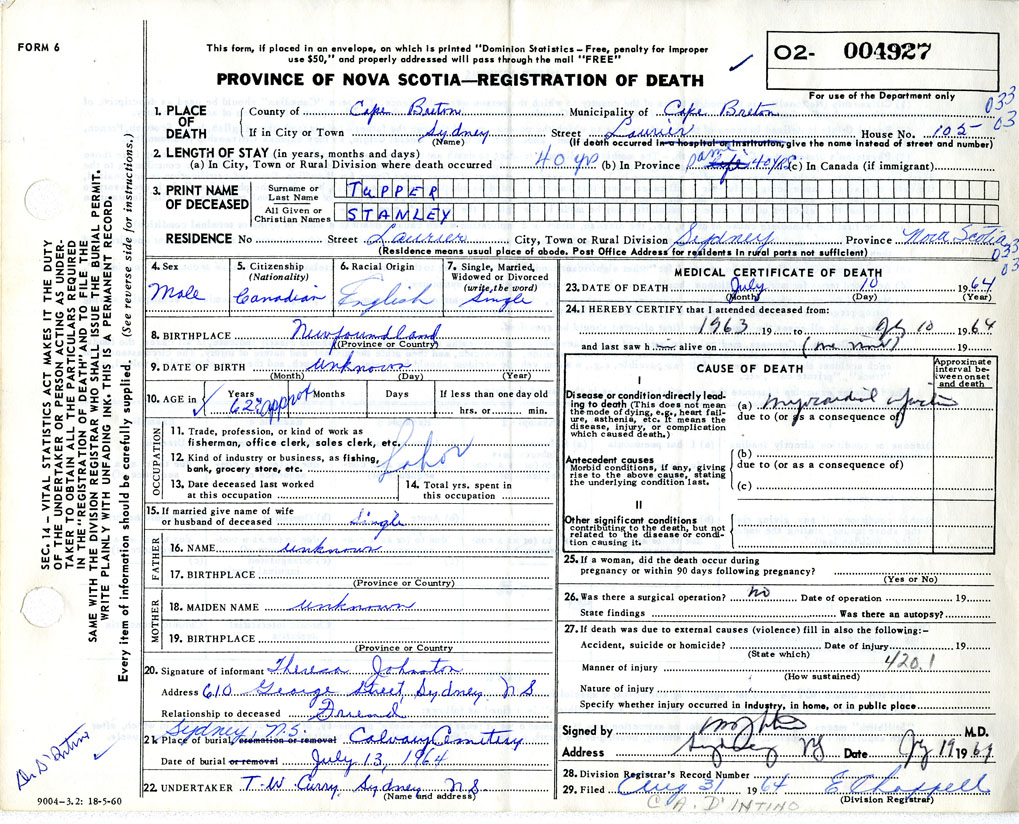 FORM 6
This form, if placed in an envelope, on which is printed "Dominion Statistics – Free, penalty for improper
use $50," and properly addressed will pass through the mail "FREE"
PROVINCE OF NOVA SCOTIA—REGISTRATION OF DEATH
02- 004927
For use of the Department only
033
03
1. PLACE OF DEATH
County of Cape Breton Municipality of Cape Breton
If in City or Town Sydney Street Laurier House No. 102-
(Name) (If death occurred in a hospital or institution, give the name instead of street and number)
2. LENGTH OF STAY (in years, months and days)
(a) In City, Town or Rural Division where death occurred 40 yrs (b) In Province 40 yrs. (c) In Canada (if immigrant)
3. PRINT NAME OF DECEASED
Surname or Last Name TUPPER
All Given or Christian Names STANLEY
RESIDENCE No Street Laurier City, Town or Rural Division Sydney Province Nova Scotia
033
03
(Residence means usual place of abode. Post Office Address for residents in rural parts not sufficient)
4. Sex
Male
5. Citizenship
(Nationality)
Canadian
6. Racial Origin
English
7. Single, Married,
Widowed or Divorced
(write, the word)
Single
8. BIRTHPLACE Newfoundland
(Province or Country)
9. DATE OF BIRTH unknown
(Month) (Day) (Year)
10. AGE in Years Months Days If less than one day old
62 approx hrs. or min.
OCCUPATION
11. Trade, profession, or kind of work as
fisherman, office clerk, sales clerk, etc.
12. Kind of industry or business, as fishing,
bank, grocery store, etc.
Labor
13. Date deceased last worked
at this occupation
14. Total yrs. spent in
this occupation
15. If married give name of wife
or husband of deceased Single
FATHER
16. NAME unknown
17. BIRTHPLACE
(Province or Country)
MOTHER
18. MAIDEN NAME unknown
19. BIRTHPLACE
(Province or Country
20. Signature of informant Theresa Johnston
Address 610 George Street, Sydney N S
Relationship to deceased Friend
Sydney, N.S.
21. Place of burial, cremation or removal Calvary Cemetery
Date of burial or removal July 13, 1964
22. UNDERTAKER T. W. Curry, Sydney N S
(Name and address)
MEDICAL CERTIFICATE OF DEATH
23. DATE OF DEATH July 10 1964
(Month) (Day) (Year)
24. I HEREBY CERTIFY that I attended deceased from:
1963 19 to 10 1964
and last saw h im alive on 19
CAUSE OF DEATH
Approximate
interval be-
tween onset
and death
I
Disease or condition directly lead-
ing to death (This does not mean
the mode of dying, e.g., heart fail-
ure, asthenia, etc. It means the
disease, injury, or complication
which caused death.)
(a) myocardial infarction
due to (or as a consequence of)
Antecedent causes
Morbid conditions, if any, giving
rise to the above cause, stating
the underlying condition last.
(b)
due to (or as a consequence of)
(c)
II
Other significant conditions
contributing to the death, but not
related to the disease or condi-
tion causing it.
25. If a woman, did the death occur during
pregnancy or within 90 days following pregnancy?
(Yes or No)
26. Was there a surgical operation? no Date of operation 19
State findings Was there an autopsy?
27. If death was due to external causes (violence) fill in also the following:–
Accident, suicide or homicide? Date of injury 19
(State which)
420.1
Manner of injury
(How sustained)
Nature of injury
Specify whether injury occurred in Industry, in home, or in public place
Signed by M.D.
Address Sydney NS Date 19 1964
28. Division Registrar's Record Number
29. Filed Aug 31 1964 E Chappell
(Division Registrar)
C. A. D'INTINO
SEC. 14 – VITAL STATISTICS ACT MAKES IT THE DUTY
OF THE UNDERTAKER OR PERSON ACTING AS UNDER-
TAKER TO OBTAIN ALL THE PARTICULARS REQUIRED
IN THE "REGISTRATION OF DEATH" AND TO FILE THE
SAME WITH THE DIVISION REGISTRAR WHO SHALL ISSUE THE BURIAL PERMIT.
WRITE PLAINLY WITH UNFADING INK. THIS IS A PERMANENT RECORD.
Every item of information should be carefully supplied. (See reverse side for instructions.)
Dr D'Intino
9004-3.2: 18-5-60